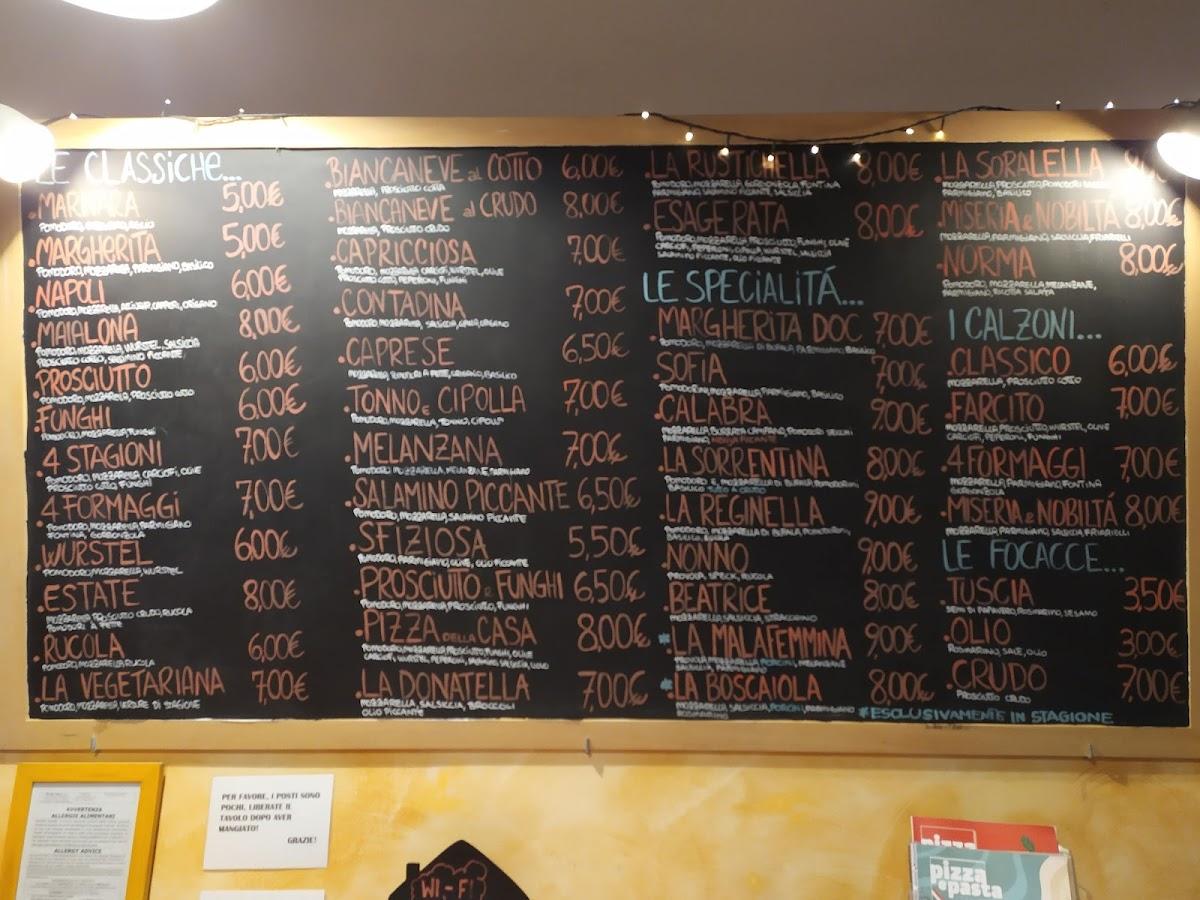 LE CLASSICHE...
.MARINARA 5,00€
POMODORO, ORIGANO, AGLIO
.MARGHERITA 5,00€
POMODORO, MOZZARELLA, PARMIGIANO, BASILICO
.NAPOLI 6,00€
POMODORO, MOZZARELLA, ALICI, CAPPERI, ORIGANO
.MAIALONA 8,00€
POMODORO, MOZZARELLA, WURSTEL, SALSICCIA
PROSCIUTTO COTTO, SALAMINO PICCANTE
.PROSCIUTTO 6,00€
POMODORO, MOZZARELLA, PROSCIUTTO COTTO
.FUNGHI 6,00€
POMODORO, MOZZARELLA, FUNGHI
.4 STAGIONI 7,00€
POMODORO, MOZZARELLA, CARCIOFI, OLIVE
PROSCIUTTO COTTO, FUNGHI
.4 FORMAGGI 7,00€
POMODORO, MOZZARELLA, PARMIGIANO
FONTINA, GORGONZOLA
.WURSTEL 6,00€
POMODORO, MOZZARELLA, WURSTEL
.ESTATE 8,00€
MOZZARELLA PROSCIUTTO CRUDO, RUCOLA
POMODORI A FETTE
.RUCOLA 6,00€
POMODORO, MOZZARELLA, RUCOLA
.LA VEGETARIANA 7,00€
POMODORO, MOZZARELLA, VERDURE DI STAGIONE
.BIANCANEVE al COTTO 6,00€
MOZZARELLA, PROSCIUTTO COTTO
.BIANCANEVE al CRUDO 8,00€
MOZZARELLA, PROSCIUTTO CRUDO
.CAPRICCIOSA 7,00€
POMODORO, MOZZARELLA CARCIOFI, WURSTEL, OLIVE
PROSCIUTTO COTTO, PEPERONI, FUNGHI
.CONTADINA 7,00€
POMODORO MOZZARELLA, SALSICCIA, ORIGANO
.CAPRESE 6,50€
MOZZARELLA, POMODORI A FETTE, ORIGANO, BASILICO
.TONNO e CIPOLLA 7,00€
POMODORO, MOZZARELLA, TONNO, CIPOLLA
.MELANZANA 7,00€
POMODORO MOZZARELLA, MELANZANE, PARMIGIANO
.SALAMINO PICCANTE 6,50€
POMODORO, MOZZARELLA, SALAMINO PICCANTE
.SFIZIOSA 5,50€
POMODORO, PARMIGIANO, OLIVE, OLIO PICCANTE
.PROSCIUTTO e FUNGHI 6,50€
POMODORO, MOZZARELLA, PROSCIUTTO, FUNGHI
.PIZZA DELLA CASA 8,00€
POMODORO, MOZZARELLA, PROSCIUTTO, FUNGHI, OLIVE
CARCIOFI, WURSTEL, PEPERONI, SALAMINO, SALSICCIA, UOVO
.LA DONATELLA 7,00€
MOZZARELLA, SALSICCIA, BROCCOLI
OLIO PICCANTE
.LA RUSTICHELLA 8,00€
POMODORO, MOZZARELLA, GORGONZOLA, FONTINA
PARMIGIANO SALAMINO PICCANTE, SALSICCIA
.ESAGERATA 8,00€
POMODORO, MOZZARELLA PROSCIUTTO, FUNGHI, OLIVE
CARCIOFI, PEPERONI, CIPOLLA WURSTEL, SALSICCIA
SALAMINO PICCANTE, OLIO PICCANTE
LE SPECIALITÁ...
.MARGHERITA DOC 7,00€
POMODORO, MOZZARELLA DI BUFALA, PARMIGIANO, BASILICO
.SOFIA 7,00€
POMODORINI, MOZZARELLA, PARMIGIANO, BASILICO
.CALABRA 9,00€
MOZZARELLA, BURRATA CAMPANA, POMODORI SECCHI
PARMIGIANO, NDUJA PICCANTE
.LA SORRENTINA 8,00€
POMODORO E MOZZARELLA DI BUFALA, POMODORINI,
BASILICO TUTTO A CRUDO
.LA REGINELLA 9,00€
POMODORO, MOZZARELLA DI BUFALA, POMODORINI,
BASILICO, RUCOLA
.NONNO 9,00€
PROVOLA, SPECK, RUCOLA
.BEATRICE 8,00€
POMODORO, MOZZARELLA, SALSICCIA, STRACCHINO
*.LA MALAFEMMINA 9,00€
PROVOLA MOZZARELLA, PORCINI, MELANZANE
BASILICO, PARMIGIANO
*.LA BOSCAIOLA 8,00€
MOZZARELLA, SALSICCIA, PORCINI, PARMIGIANO
ROSMARINO
.LA SORALELLA
MOZZARELLA, PROSCIUTTO, POMODORI
PARMIGIANO, BASILICO
.MISERIA & NOBILTÁ 8,00€
MOZZARELLA, PARMIGIANO, SALSICCIA, FRIARIELLI
.NORMA 8,00€
POMODORO, MOZZARELLA, MELANZANE,
PARMIGIANO, RICOTTA SALATA
I CALZONI...
.CLASSICO 6,00€
MOZZARELLA, PROSCIUTTO COTTO
.FARCITO 7,00€
MOZZARELLA PROSCIUTTO, WURSTEL, OLIVE
CARCIOFI, PEPERONI, FUNGHI
.4 FORMAGGI 7,00€
MOZZARELLA, PARMIGIANO, FONTINA
GORGONZOLA
.MISERIA & NOBILTÁ 8,00€
MOZZARELLA, PARMIGIANO, SALSICCIA FRIARIELLI
LE FOCACCE...
.TUSCIA 3,50€
SEMI DI PAPAVERO, ROSMARINO, SESAMO
.OLIO 3,00€
ROSMARINO, SALE, OLIO
.CRUDO 7,00€
PROSCIUTTO CRUDO
*ESCLUSIVAMENTE IN STAGIONE
AVVERTENZA
ALLERGIE ALIMENTARI
ALLERGY ADVICE
PER FAVORE, I POSTI SONO
POCHI, LIBERATE IL
TAVOLO DOPO AVER
MANGIATO!
GRAZIE!
WI-FI
pizza
pizza
e pasta